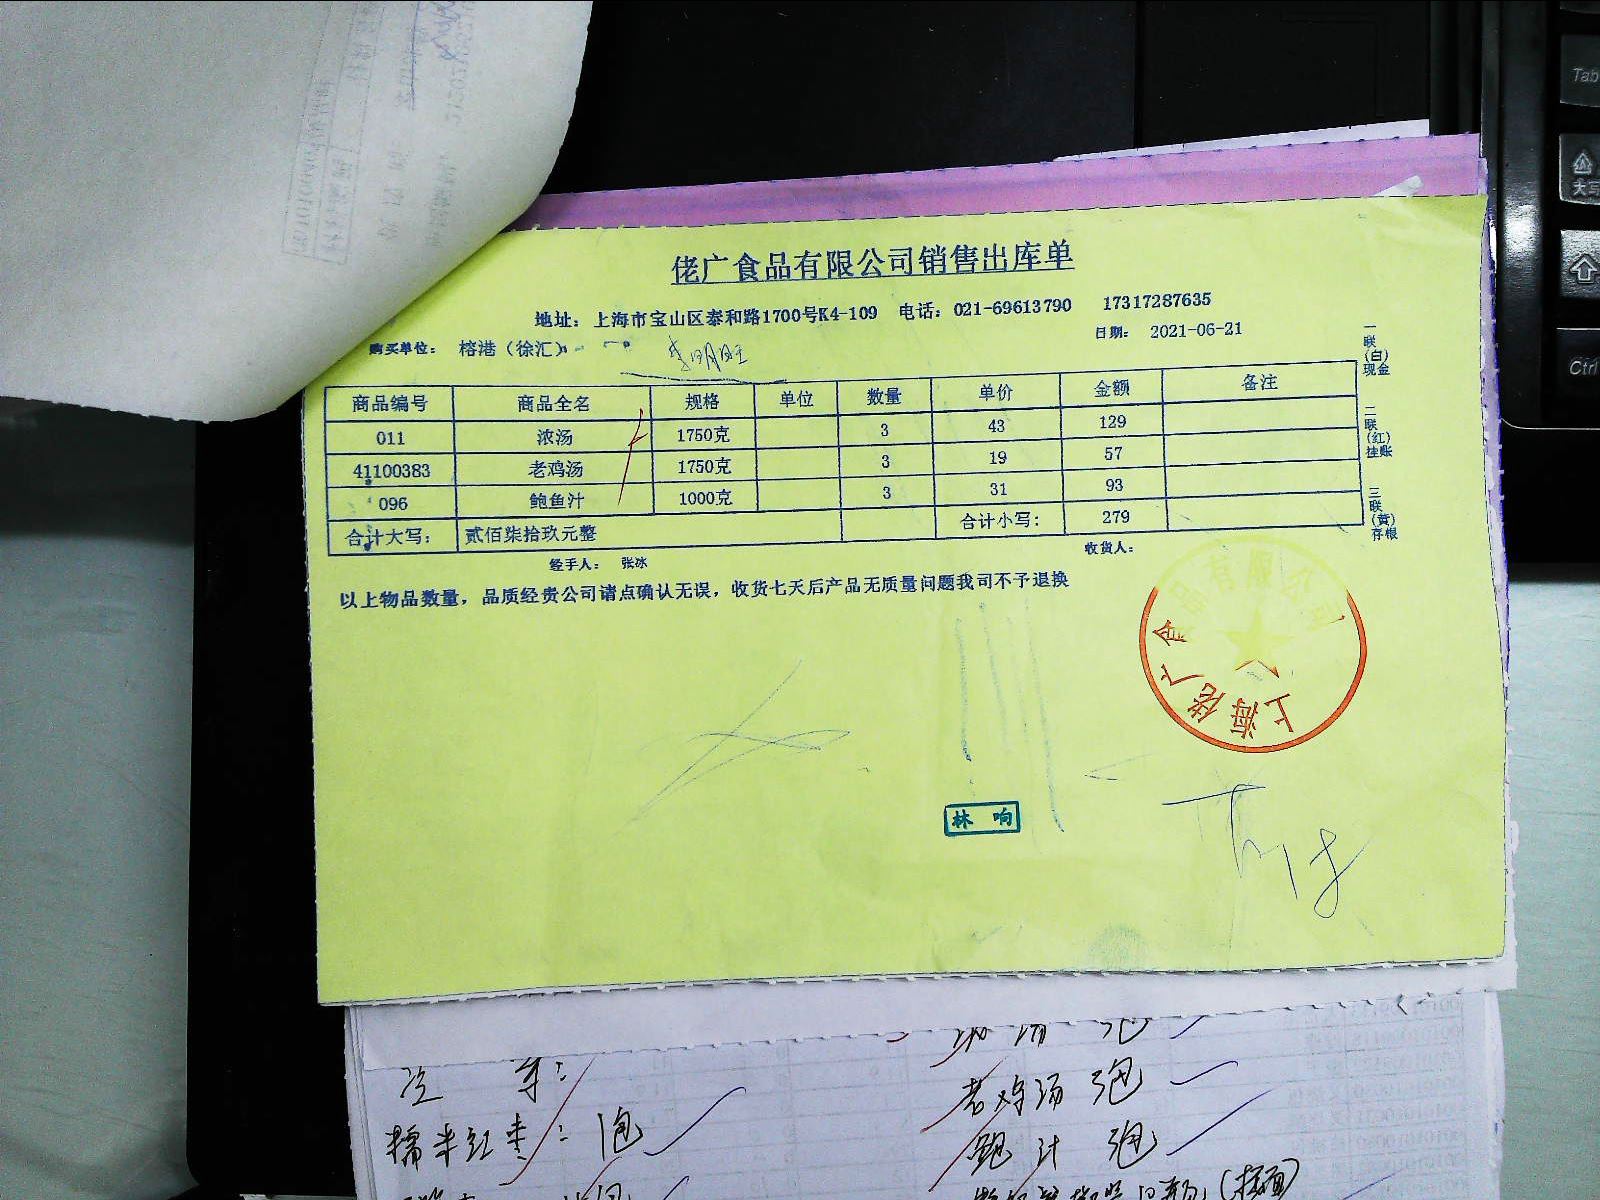 佬广食品有限公司销售出库单
地址：上海市宝山区泰和路1700号K4-109 电话：021-69613790 17317287635
购买单位： 榕港（徐汇） 日期： 2021-06-21
商品编号 商品全名 规格 单位 数量 单价 金额 备注
011 浓汤 1750克 3 43 129
41100383 老鸡汤 1750克 3 19 57
096 鲍鱼汁 1000克 3 31 93
合计大写： 贰佰柒拾玖元整 合计小写： 279
经手人： 张冰 收货人：
以上物品数量，品质经贵公司请点确认无误，收货七天后产品无质量问题我司不予退换
一联（白）现金
二联（红）挂账
三联（黄）存根
上海佬广食品有限公司
林 响
老鸡汤 3包
鲍汁 3包
糯米红枣： 1包
Tab
大写
Ctrl